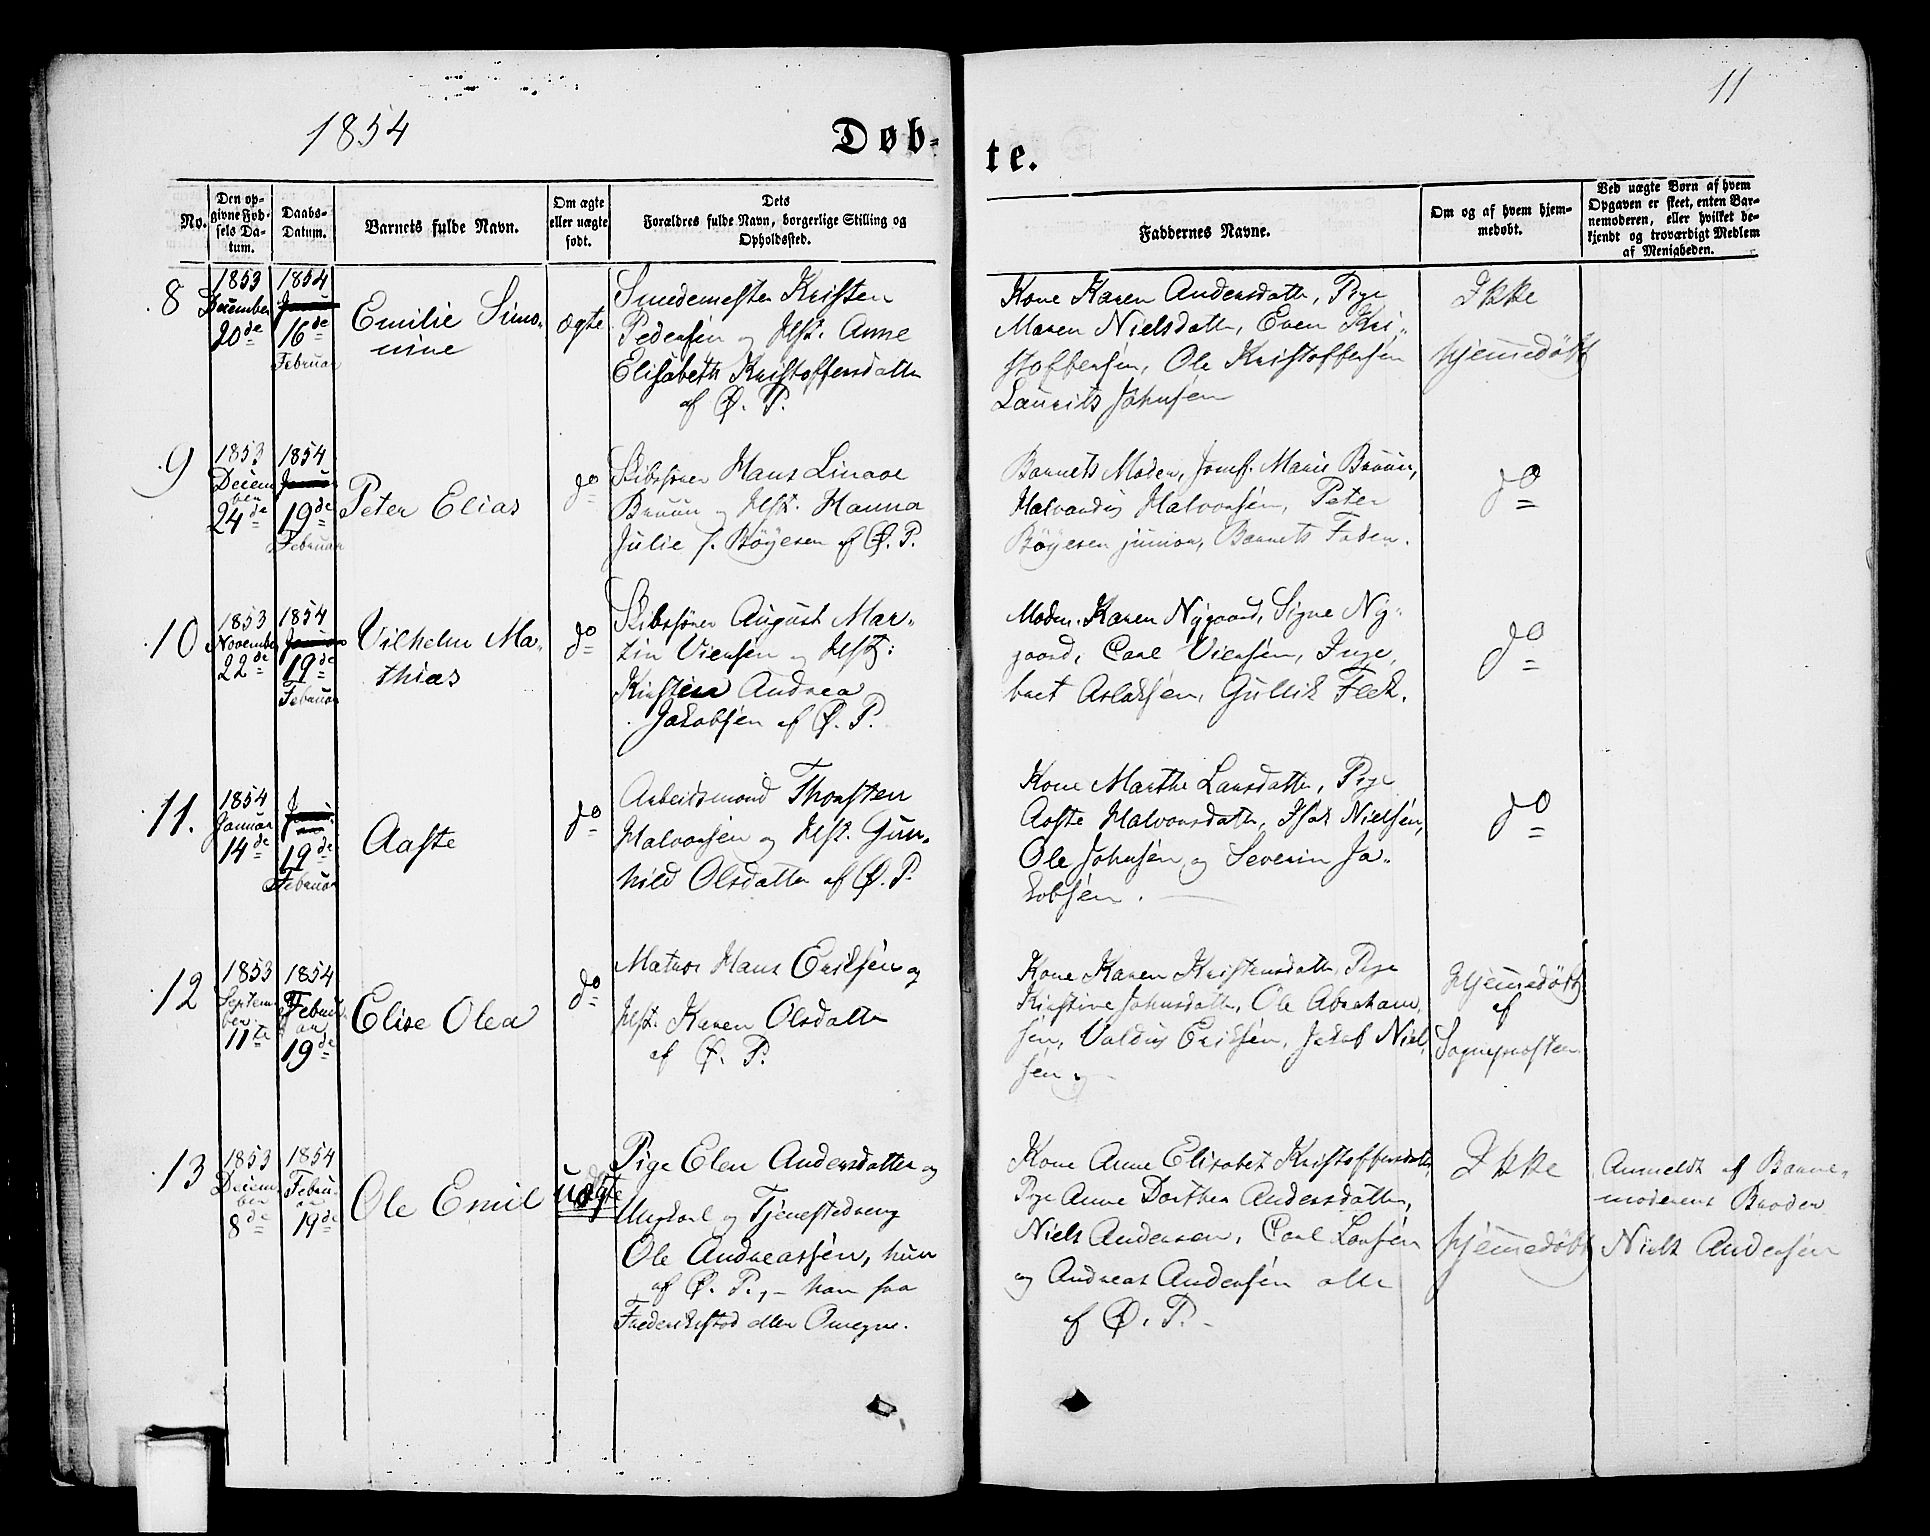 1854
Døb-
te.
11
No.
Den op-
givne Fød-
sels Da-
tum.
Daabs-
Datum.
Barnets fulde Navn.
Om ægte
eller uægte
født.
Dets
Forældres fulde Navn, borgerlige Stilling og
Opholdssted.
Faddernes Navne.
Om og af hvem hjem-
medøbt.
Ved uægte Børn af hvem
Opgaven er skeet, enten Bar-
nemoderen, eller hvilket be-
kjendt og troværdigt Medlem
af Menigheden.
8
1853
December
20de
1854
Janu
16de
Februar
Emilie Simo-
nine
Ægte
Smedemester Kristen
Pedersen og Hst. Anne
Elisabeth Kristoffersdatter
af Ø. P.
Kone Karen Andersdatter, Pige
Maren Nielsdatter, Even Kri-
stoffersen, Ole Kristoffersen
Laurits Johnsen
Ikke
hjemmedøbt
9
1853
Decem
ber
24de
1854
Januar
19de
Februar
Peter Elias
do
Skibsfører Hans Linaae
Bruun og Hst. Hanna
Julie f. Bøyesen af Ø. P.
Barnets Moder, Jomf. Marie Bruun,
Halvardus Halvorsen, Peter
Bøyesen junior, Barnets Fader.
do
10
1853
November
22de
1854
Januar
19de
Februar
Vilhelm Ma-
thias
do
Skibsfører August Mar-
tin Viersen og Hst:
Kirstine Andrea
Jakobsen af Ø. P.
Moder. Karen Nygaard, Signe Ny-
gaard, Carl Viersen, Inge-
bret Aslaksen, Gullik Feck.
do
11.
1854
Januar
14de
Janu-
ar
19de
Februar
Aaste
do
Arbeidsmand Thorsten
Halvorsen og Hst. Gun-
hild Olsdatter af Ø. P.
Kone Marthe Larsdatter, Pige
Aaste Halvorsdatter, Isak Nielsen,
Ole Johnsen og Severin Ja-
kobsen.
do
12
1853
Septem-
ber
11te
1854
Febru-
ar
19de
Elise Olea
do
Matros Hans Eriksen og
Hst. Karen Olsdatter
af Ø. P.
Kone Karen Kristensdatter, Pige
Kirstine Johnsdatter, Ole Abraham-
sen, Valdus Eriksen, Jakob Niel-
sen
Hjemmedøbt
af
Sognepresten
13
1853
Decem-
ber
8de
1854
Febru-
ar
19de
Ole Emil
uægte
Pige Elen Andersdatter og
Ungkarl og Tjenestedreng
Ole Andreassen, hun
af Ø. P., - han fra
Frederikstad eller Omegn.
Kone Anne Elisabet Kristoffersdatter
Pige Anne Dorthea Andersdatter,
Niels Andersen, Carl Larsen
og Andreas Andersen alle
af Ø. P. -
Ikke
hjemmedøbt
Anmeldt af Barne-
moderens Broder
Niels Andersen